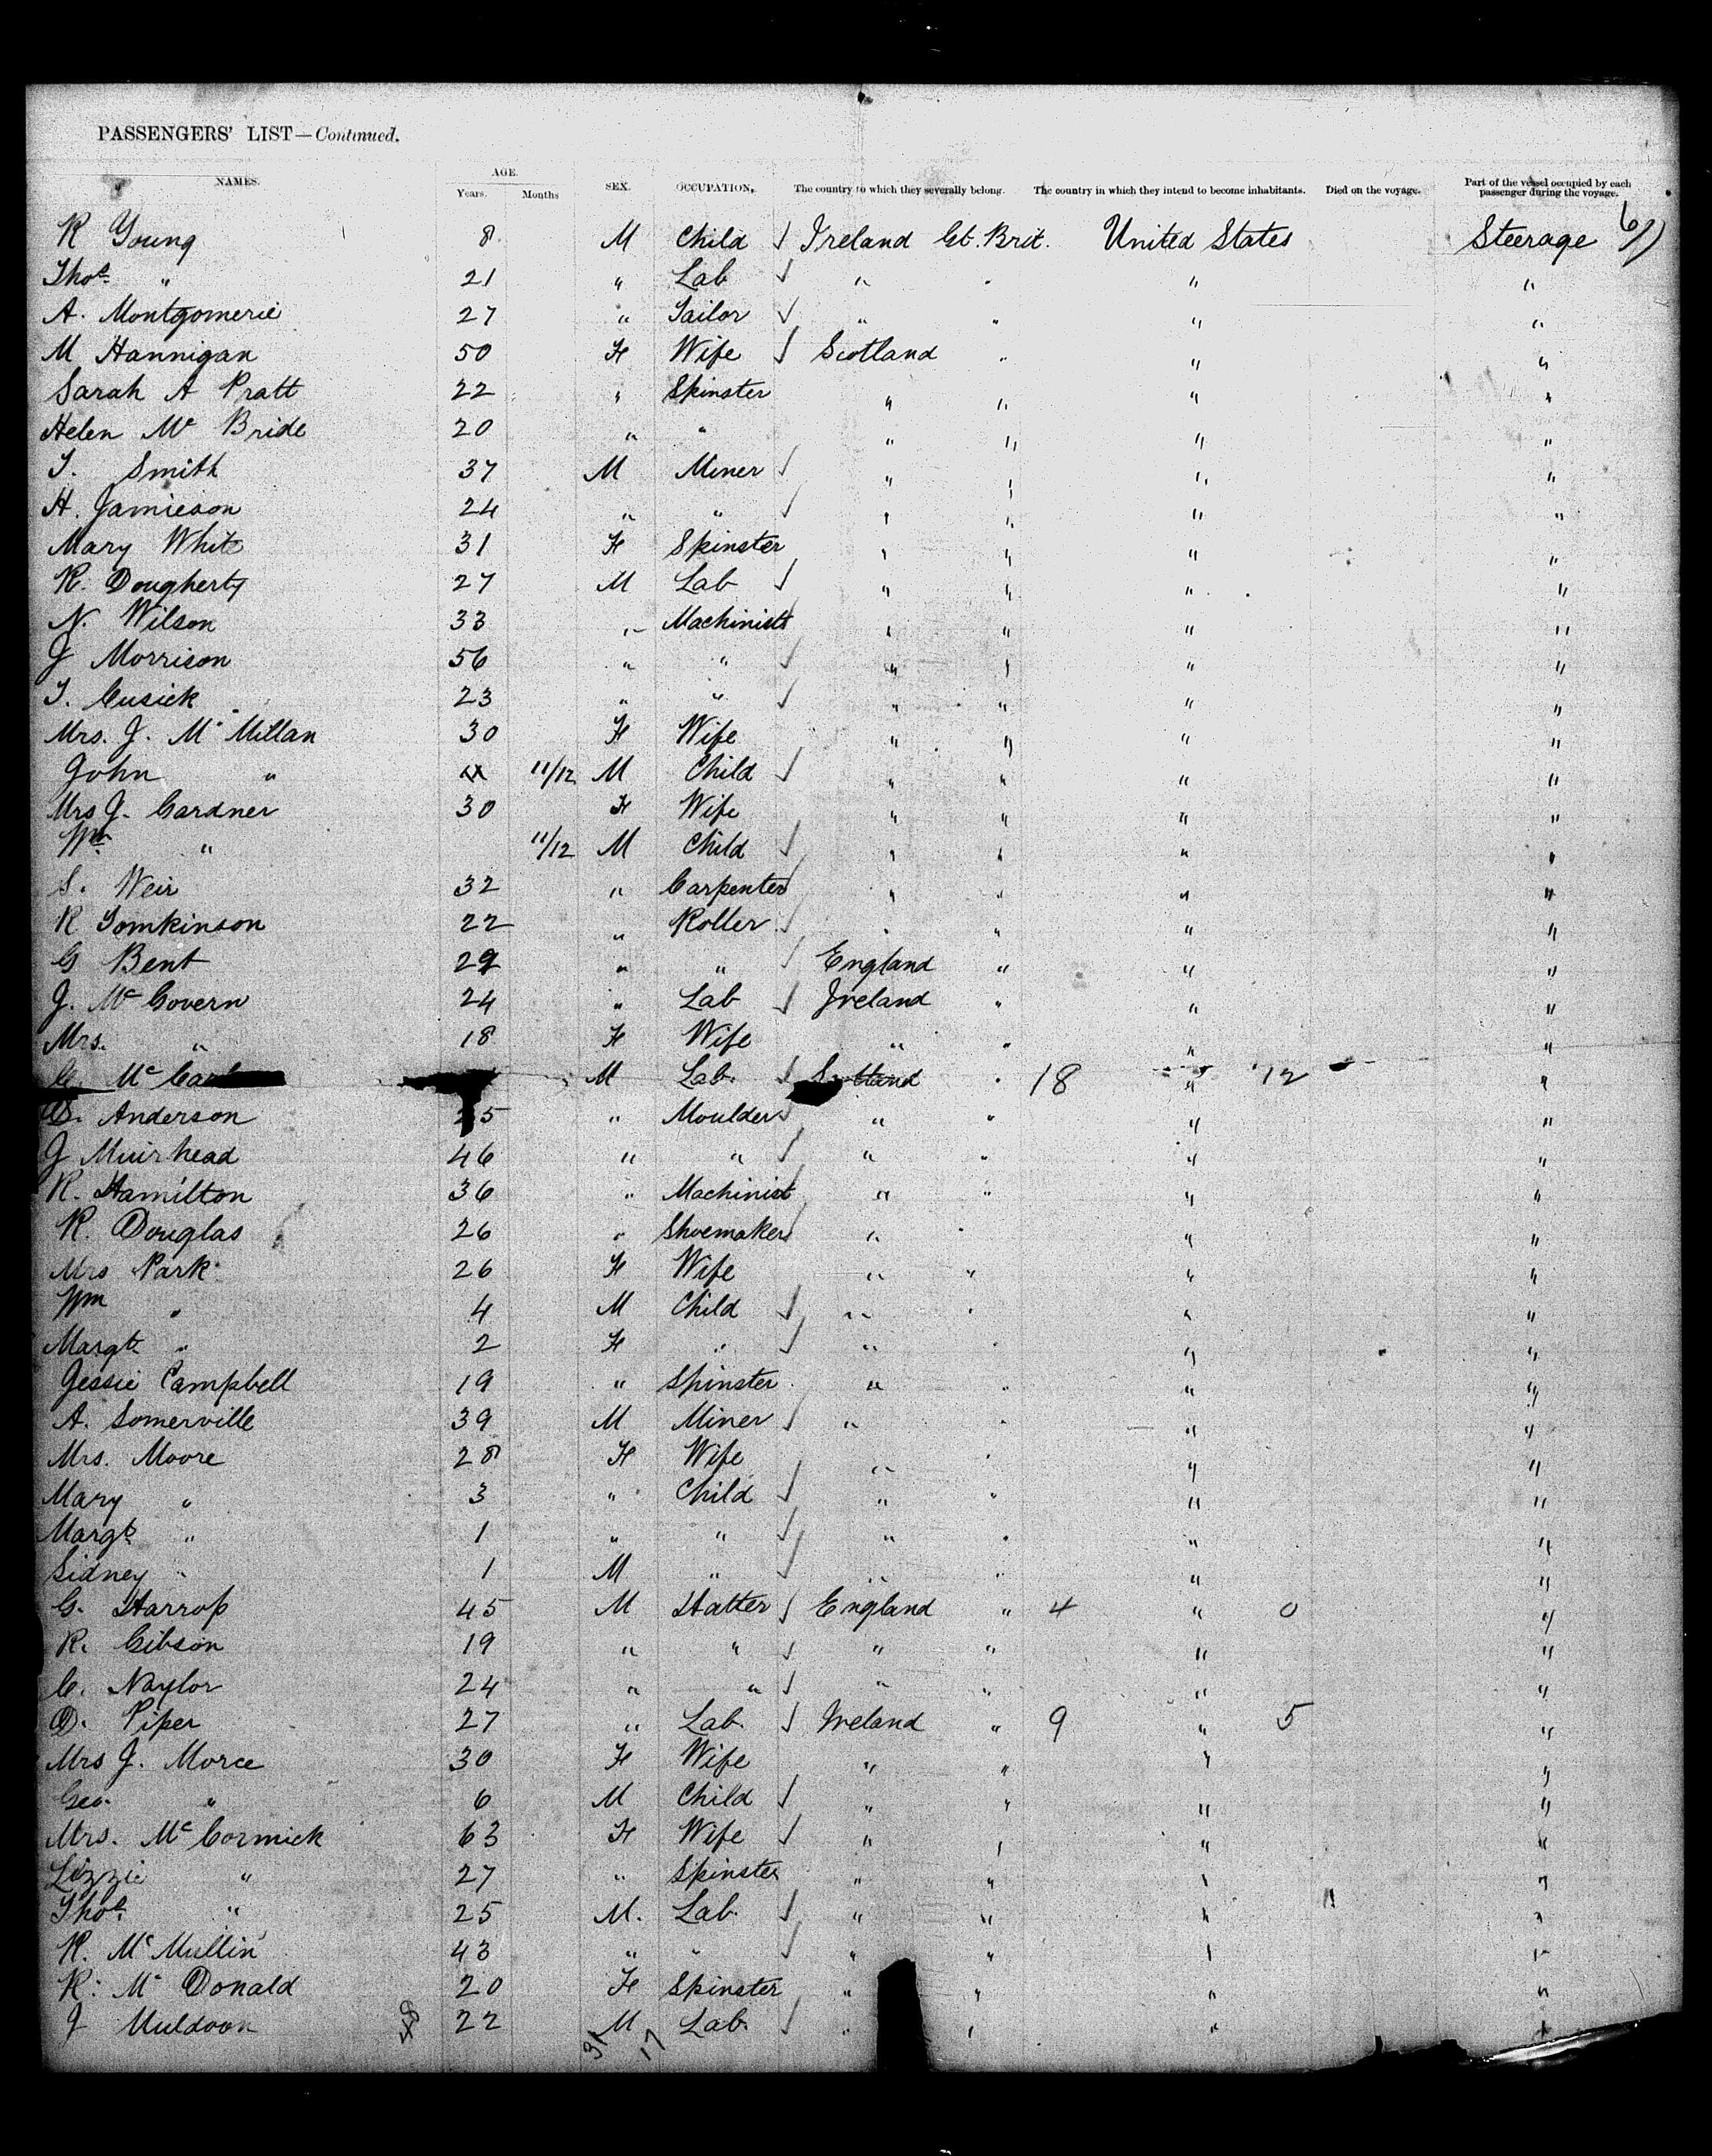 PASSENGERS' LIST—Continued.
NAMES. AGE. Years. Months SEX. OCCUPATION. The country to which they severally belong. The country in which they intend to become inhabitants. Died on the voyage. Part of the vessel occupied by each passenger during the voyage.
R Young 8 M Child Ireland Gt. Brit. United States Steerage
Thos. " 21 " Lab " " " "
A. Montgomerie 27 " Tailor " " " "
M Hannigan 50 F Wife Scotland " " "
Sarah A Pratt 22 " Spinster " " " "
Helen Mc Bride 20 " " " " " "
T. Smith 37 M Miner " " " "
H. Jamieson 24 " " " " " "
Mary White 31 F Spinster " " " "
R. Dougherty 27 M Lab " " " "
N. Wilson 33 " Machinist " " " "
J Morrison 56 " " " " " "
T. Cusick 23 " " " " " "
Mrs. J. Mc Millan 30 F Wife " " " "
John " 11/12 M Child " " " "
Mrs J. Gardner 30 F Wife " " " "
Wm " 11/12 M Child " " " "
S. Weir 32 " Carpenter " " " "
R Tomkinson 22 " Roller " " " "
G Bent 29 " " England " " "
J. Mc Govern 24 " Lab Ireland " " "
Mrs. " 18 F Wife " " " "
Mc M Lab. Scotland " 18 " 12 "
Anderson 5 " Moulder " " " "
J Muirhead 46 " " " " " "
R. Hamilton 36 " Machinist " " " "
R. Douglas 26 " Shoemaker " " " "
Mrs Park 26 F Wife " " " "
Wm " 4 M Child " " " "
Margt " 2 F " " " " "
Jessie Campbell 19 " Spinster " " " "
A. Somerville 39 M Miner " " " "
Mrs. Moore 28 F Wife " " " "
Mary " 3 " Child " " " "
Margt " 1 " " " " " "
Sidney " 1 M " " " " "
G. Harrop 45 M Hatter England " 4 " 0 "
R. Gibson 19 " " " " " "
C. Naylor 24 " " " " " "
D. Piper 27 " Lab. Ireland " 9 " 5 "
Mrs J. Morce 30 F Wife " " " "
Geo. " 6 M Child " " " "
Mrs. Mc Cormick 63 F Wife " " " "
Lizzie " 27 " Spinster " " " "
Thos. " 25 M. Lab. " " " "
R. Mc Mullin 43 " " " " " "
R. Mc Donald 20 F Spinster " " " "
J Muldoon 22 M Lab. " " " "
48 31 17